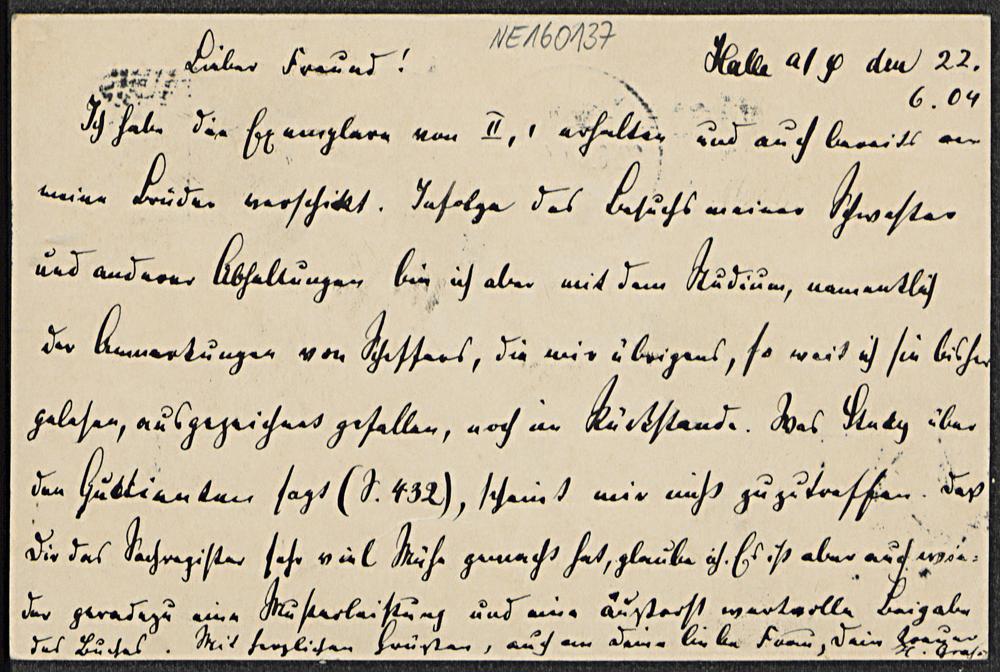 NE160137
Lieber Freund! Halle a/S den 22.
6.04
Ich habe die Exemplare von II, 1 erhalten und auch bereits an
meine Brüder verschikt. Infolge des Besuchs meiner Schwester
und anderer Abhaltungen bin ich aber mit dem Studium, namentlich
der Anmerkungen von Scheffers, die mir übrigens, so weit ich sie bisher
gelesen, ausgezeichnet gefallen, noch im Rückstande. Was Study über
den sagt (S. 432), scheint mir nicht zuzutreffen. Daß
Dir das Sachregister sehr viel Mühe gemacht hat, glaube ich. Es ist aber auch wie-
der geradezu eine Musterleistung und eine äußerst wertvolle Beigabe
des Buches. Mit herzlichen Grüßen, auch an Deine liebe Frau, Dein treuer